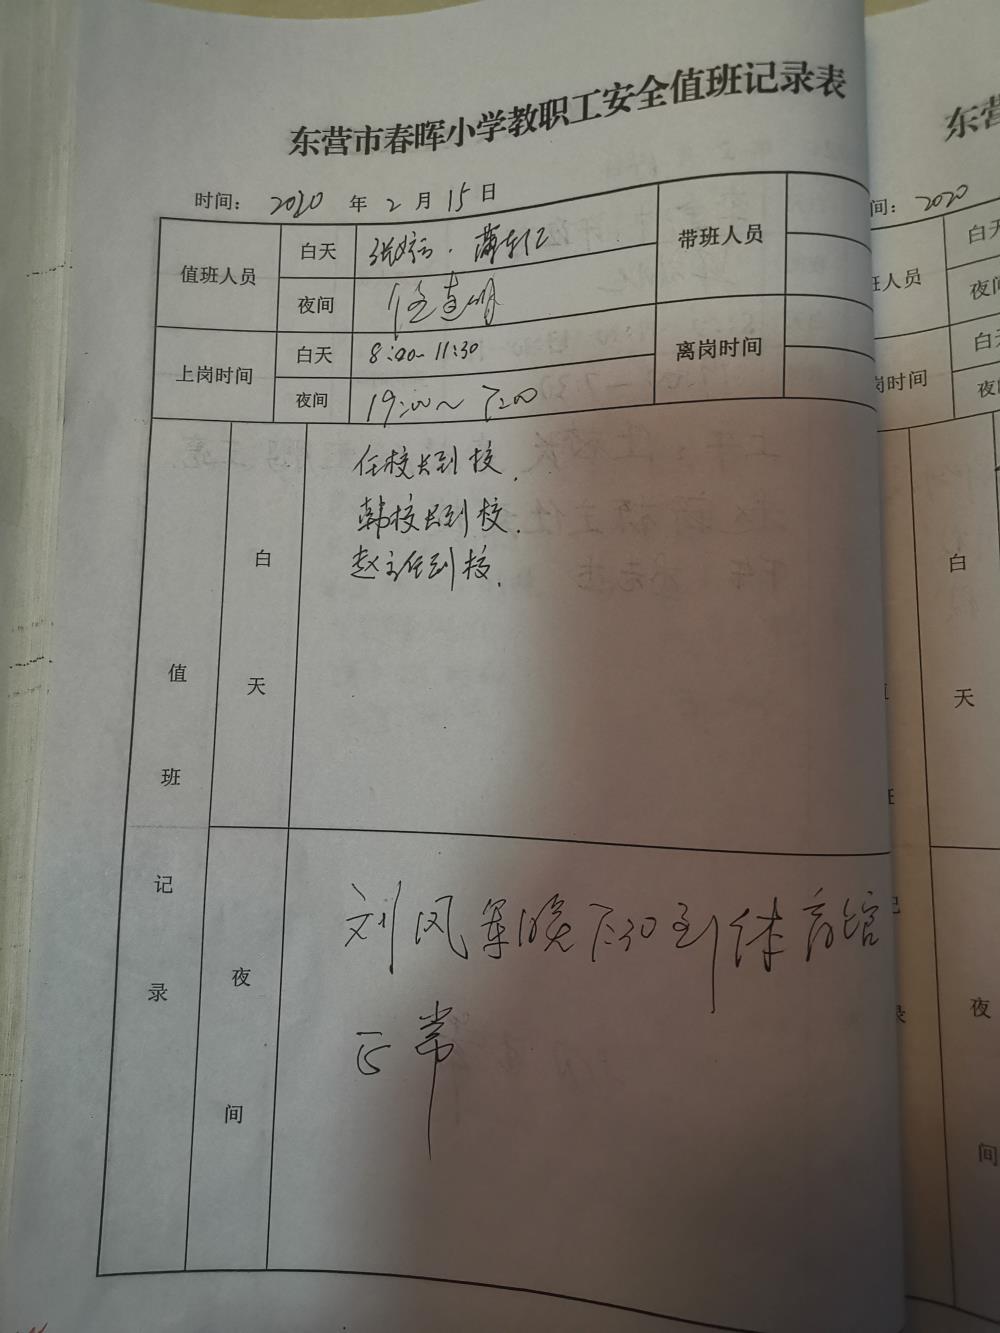 东营市春晖小学教职工安全值班记录表
东营
时间: 2020 年 2 月 15 日
间: 2020
值班人员 白天 带班人员
夜间 任建明
上岗时间 白天 8:00~11:30 离岗时间
夜间 19:00~7:00
人员 白天
夜间
岗时间 白天
夜间
任校长到校.
韩校长到校.
赵主任到校.
值班记录
白天
刘风军晚7:30到体育馆
正常
夜间
白天
夜间